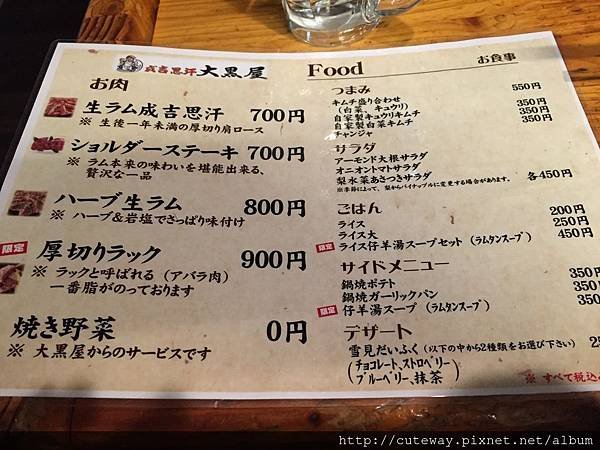 成吉思汗 大黒屋
Food
お食事
お肉
生ラム成吉思汗 700円
※ 生後一年未満の厚切り肩ロース
ショルダーステーキ 700円
※ ラム本来の味わいを堪能出来る、
贅沢な一品
ハーブ生ラム 800円
※ ハーブ&岩塩でさっぱり味付け
限定
厚切りラック 900円
※ ラックと呼ばれる(アバラ肉)
一番脂がのっております
焼き野菜 0円
※ 大黒屋からのサービスです
つまみ
キムチ盛り合わせ 550円
(白菜、キュウリ)
自家製キュウリキムチ 350円
自家製白菜キムチ 350円
チャンジャ 350円
サラダ
アーモンド大根サラダ
オニオントマトサラダ
梨水菜あさつきサラダ 各450円
※季節によって、梨からパイナップルに変更する場合があります。
ごはん
ライス 200円
ライス大 250円
限定 ライス仔羊湯スープセット(ラムタンスープ) 450円
サイドメニュー
鍋焼ポテト 350円
鍋焼ガーリックパン 350円
限定 仔羊湯スープ(ラムタンスープ) 350円
デザート
雪見だいふく(以下の中から2種類をお選び下さい)
(チョコレート、ストロベリー
ブルーベリー、抹茶)
※ すべて税込
http://cuteway.pixnet.net/album